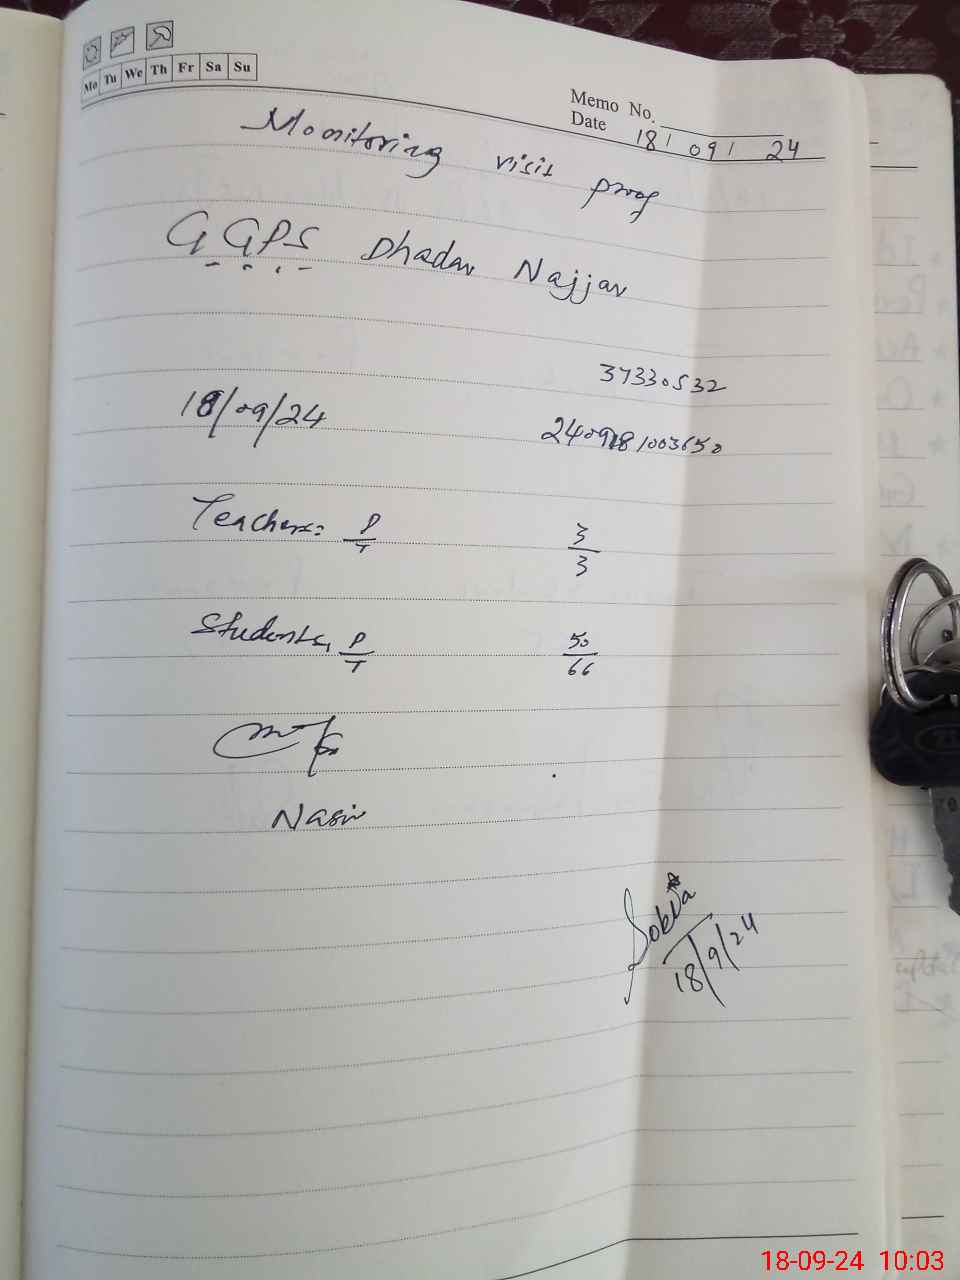 Mo Tu We Th Fr Sa Su
Memo No.
Date 18/ 09/ 24
Monitoring visit proof
GGPS Dhadar Najjar
37330532
18/09/24
2409181003650
Teachers: P/T 3/3
Students, P/T 50/66
Nasir
18/9/24
18-09-24 10:03